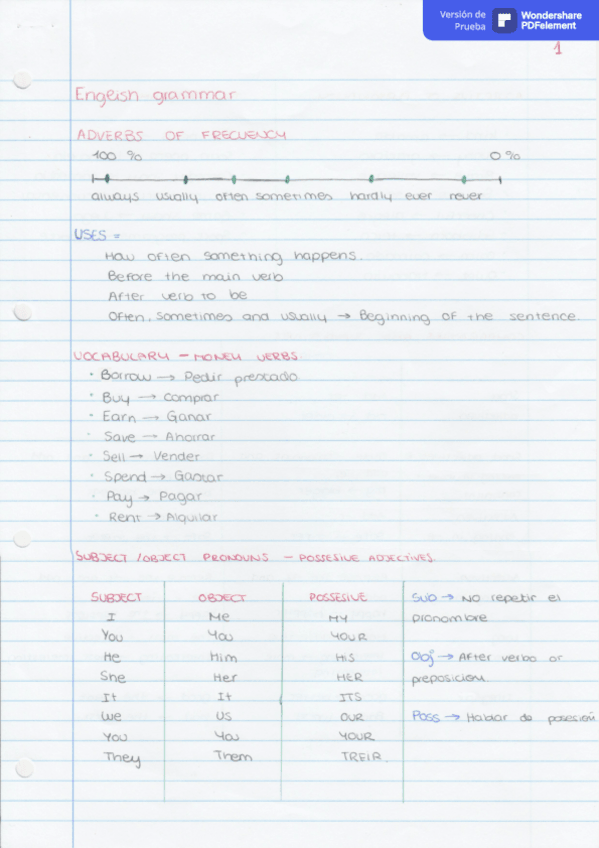 Versión de Prueba Wondershare PDFelement
1
English grammar
ADVERBS OF FRECUENCY
100 % 0 %
always usually often sometimes hardly ever never
USES =
How often something happens.
Before the main verb
After verb to be
Often, sometimes and usually → Beginning of the sentence.
VOCABULARY - MONEY VERBS
· Borrow → Pedir prestado
· Buy → Comprar
· Earn → Ganar
· Save → Ahorrar
· Sell → Vender
· Spend → Gastar
· Pay → Pagar
· Rent → Alquilar
SUBJECT / OBJECT PRONOUNS - POSSESIVE ADJECTIVES.
SUBJECT OBJECT POSSESIVE Sub → No repetir el
I Me MY pronombre
You You YOUR
He Him HIS Obj → After verbo or
She Her HER preposición.
It It ITS
We US OUR Poss → Hablar de posesión
You You YOUR
They Them TREIR.